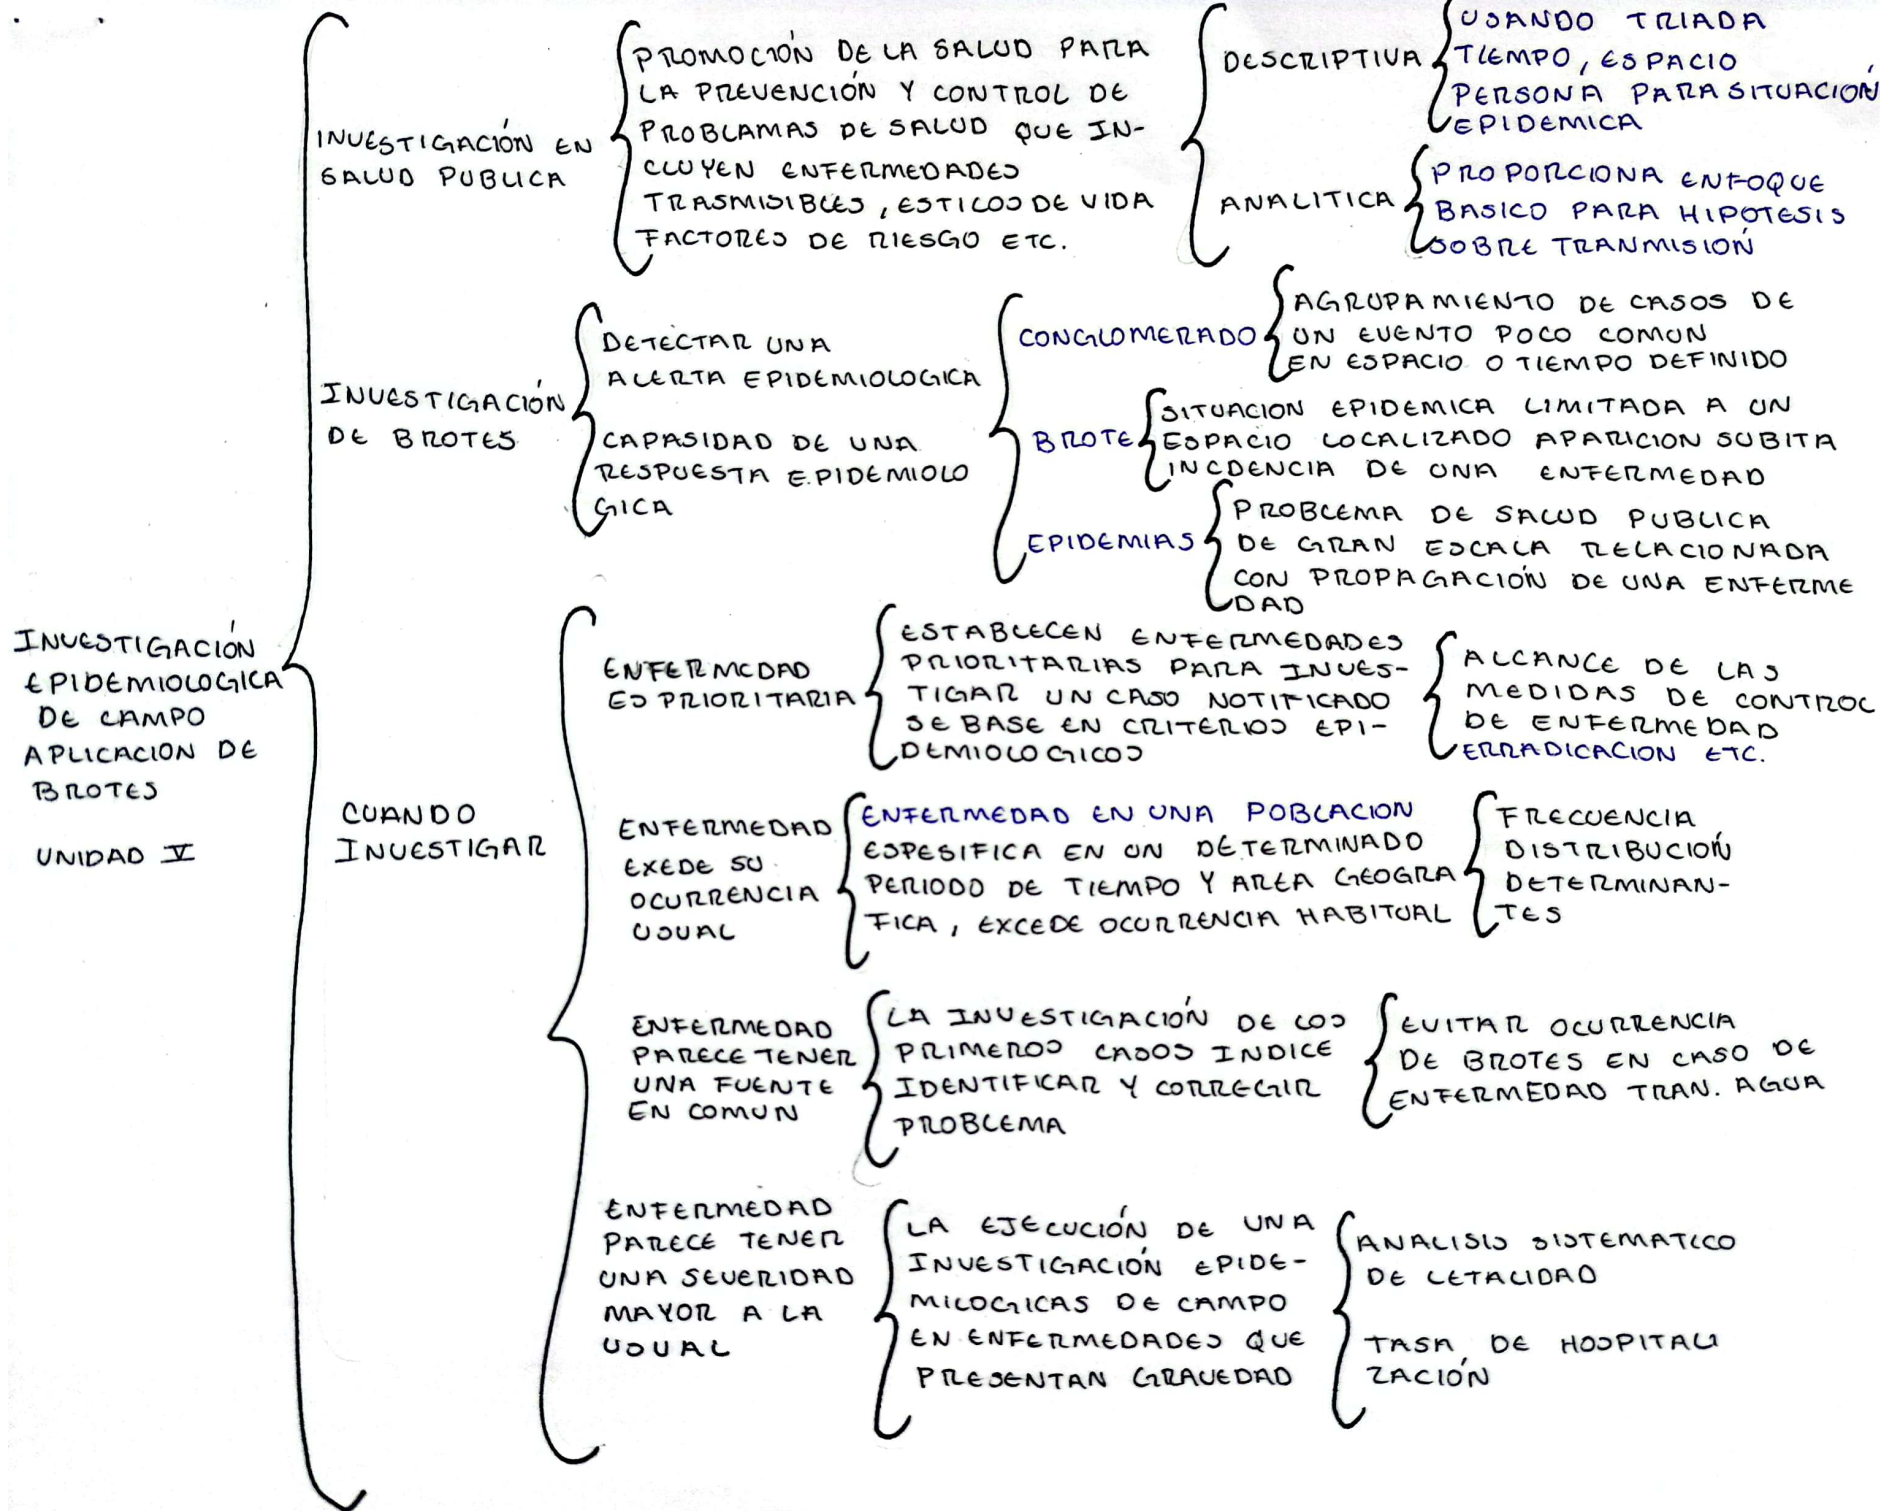 INVESTIGACIÓN
EPIDEMIOLOGICA
DE CAMPO
APLICACION DE
BROTES
UNIDAD V
INVESTIGACIÓN EN
SALUD PUBLICA
PROMOCIÓN DE LA SALUD PARA
LA PREVENCIÓN Y CONTROL DE
PROBLAMAS DE SALUD QUE IN-
CLUYEN ENFERMEDADES
TRASMISIBLES, ESTILOS DE VIDA
FACTORES DE RIESGO ETC.
DESCRIPTIVA
USANDO TRIADA
TIEMPO, ESPACIO
PERSONA PARA SITUACIÓN
EPIDEMICA
ANALITICA
PROPORCIONA ENFOQUE
BASICO PARA HIPOTESIS
SOBRE TRANMISIÓN
INVESTIGACIÓN
DE BROTES
DETECTAR UNA
ALERTA EPIDEMIOLOGICA
CAPASIDAD DE UNA
RESPUESTA EPIDEMIOLO
GICA
CONGLOMERADO
AGRUPAMIENTO DE CASOS DE
UN EVENTO POCO COMUN
EN ESPACIO O TIEMPO DEFINIDO
BROTE
SITUACION EPIDEMICA LIMITADA A UN
ESPACIO LOCALIZADO APARICION SUBITA
INCDENCIA DE UNA ENFERMEDAD
EPIDEMIAS
PROBLEMA DE SALUD PUBLICA
DE GRAN ESCALA RELACIONADA
CON PROPAGACIÓN DE UNA ENFERME
DAD
CUANDO
INVESTIGAR
ENFERMEDAD
ES PRIORITARIA
ESTABLECEN ENFERMEDADES
PRIORITARIAS PARA INVES-
TIGAR UN CASO NOTIFICADO
SE BASE EN CRITERIOS EPI-
DEMIOLOGICOS
ALCANCE DE LAS
MEDIDAS DE CONTROL
DE ENFERMEDAD
ERRADICACION ETC.
ENFERMEDAD
EXEDE SU
OCURRENCIA
USUAL
ENFERMEDAD EN UNA POBLACION
ESPESIFICA EN UN DETERMINADO
PERIODO DE TIEMPO Y AREA GEOGRA
FICA, EXCEDE OCURRENCIA HABITUAL
FRECUENCIA
DISTRIBUCIÓN
DETERMINAN-
TES
ENFERMEDAD
PARECE TENER
UNA FUENTE
EN COMUN
LA INVESTIGACIÓN DE LOS
PRIMEROS CASOS INDICE
IDENTIFICAR Y CORREGIR
PROBLEMA
EVITAR OCURRENCIA
DE BROTES EN CASO DE
ENFERMEDAD TRAN. AGUA
ENFERMEDAD
PARECE TENER
UNA SEVERIDAD
MAYOR A LA
USUAL
LA EJECUCIÓN DE UNA
INVESTIGACIÓN EPIDE-
MILOGICAS DE CAMPO
EN ENFERMEDADES QUE
PRESENTAN GRAVEDAD
ANALISIS SISTEMATICO
DE LETALIDAD
TASA DE HOSPITALI
ZACIÓN